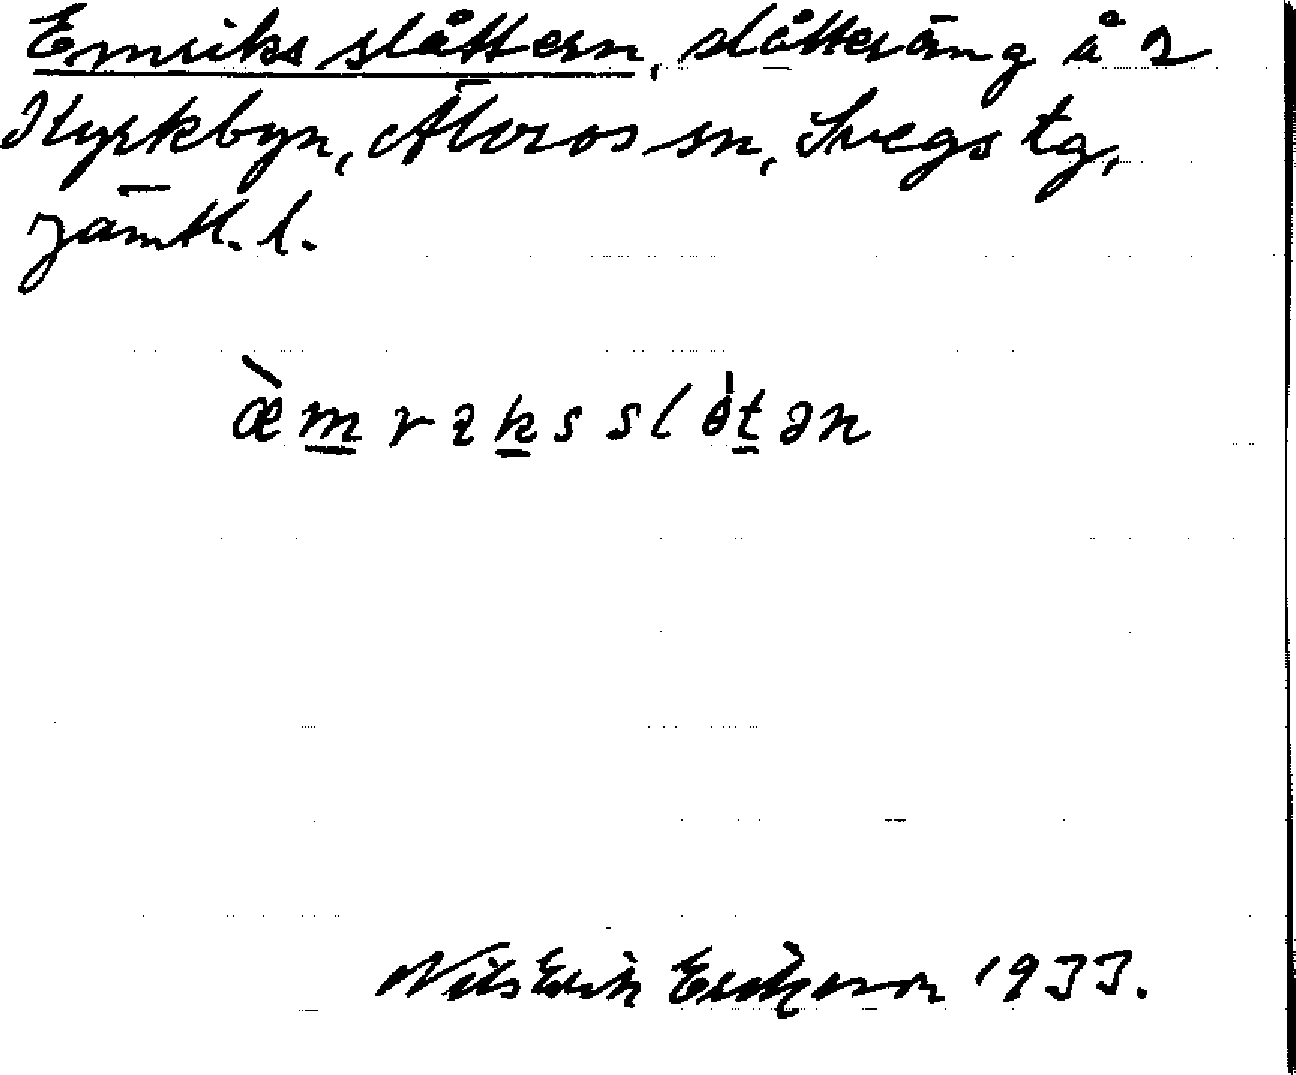 Emriks slåttern, slåtteräng å 2
Kyrkbyn, Älvros sn, Svegs tg,
Jämtl. l.
æ̀m̲rɩk̲s slòt̲ən
Nils Erik Eriksson 1933.